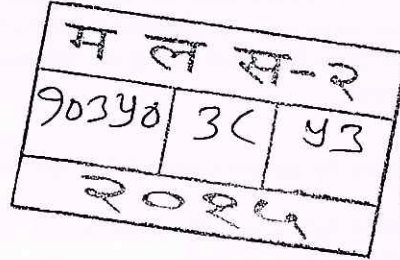 म ल स-२
१०३५० ३८ ५३
२०१५